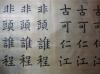 古可仁江
古可仁江
非頭誰程
非頭誰程